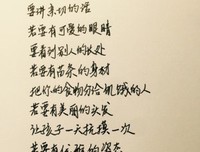 要讲亲切的话
若要有可爱的眼睛
要看到别人的好处
若要有苗条的身材
把你的食物分给饥饿的人
若要有美丽的头发
让孩子一天抚摸一次
若要有优雅的姿态